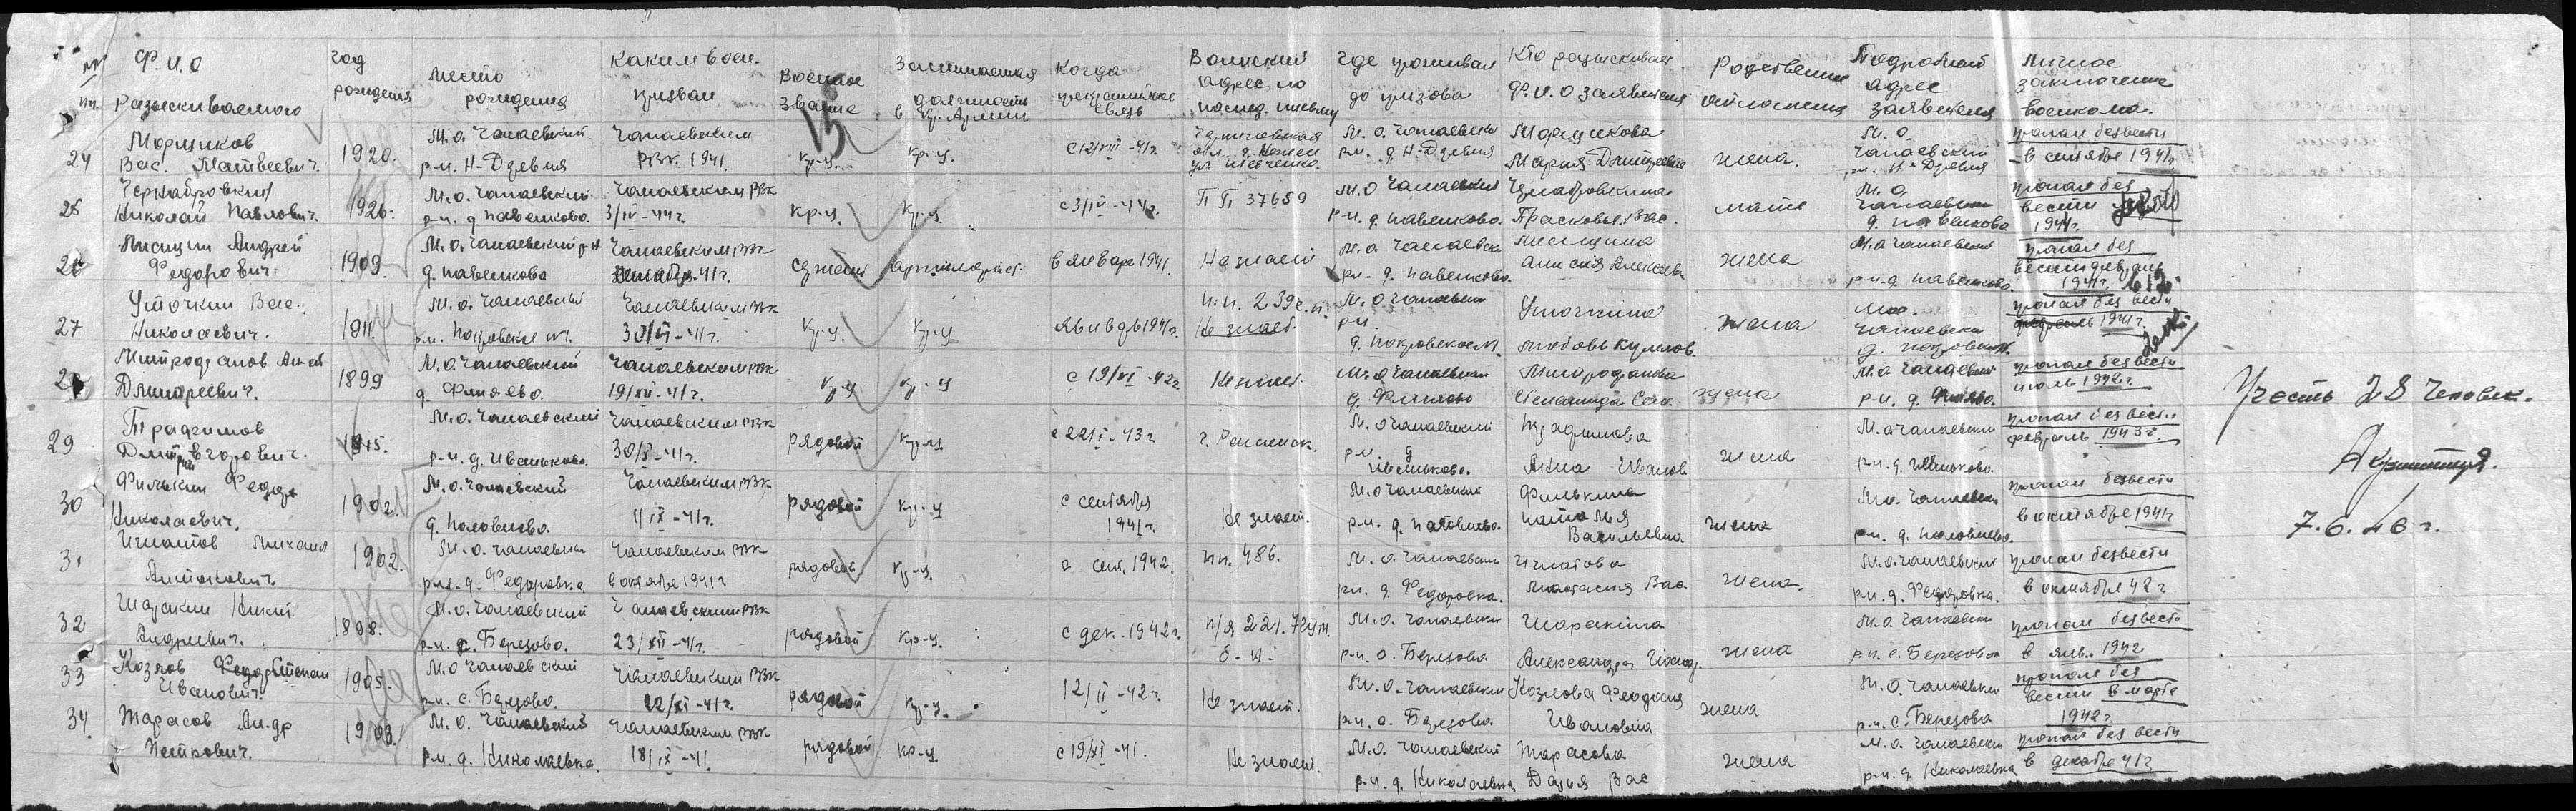 № пп. Ф.И.О разыскиваемого | год рождения | место рождения | Каким воен. призван | Военное звание | Занимаемая должность в Кр. Армии | Когда прекратилась связь | Воинский адрес по послед. письму | где проживал до призова | Кто разыскивает Ф.и.о заявителя | Родственные отношения | Подробный адрес заявителя | Личное заключение военкома.
15
24 Вас. Матвеевич. | 1920. | М.О. Чапаевский р-н. Н-Дзевня | Чапаевским РВК 1941. | Кр-ц. | Кр-ц. | с 12/VIII-41г. | Черниговская обл. | М.О. Чапаевский р-н. д. Н-Дзевня | Мария Дмитревна | жена. | М.О. Чапаевский р-н. Н-Дзевня | пропал безвести в сентябре 1941г.
25 Николай Павлович. | 1926. | М.О. Чапаевский р-н. д Павенково. | Чапаевским РВК 3/IV-44г. | Кр-ц. | Кр-ц. | с 3/IV-44г. | П П 37659 | М.О Чапаевский р-н. д. Павенково. | Прасковья Вас. | мать | М.О. Чапаевский д. Павенкова | пропал без вести 1944г.
26 Лисицин Андрей Федорович. | 1909. | М.О. Чапаевский р-н д. Павенкова | Чапаевским РВК 41г. | сержант | в январе 1941. | Не знает | М.О. Чапаевск р-н. д. Павенково. | Лисицина Алексеевн | жена | М.О Чапаевский р-н. д. Павенково | пропал без вести февраль 1941г.
27 Уточкин Вас. Николаевич. | 1911. | М.О. Чапаевский р-н. Покровское | Чапаевским РВК 30/VI-41г. | Кр-ц. | Кр-ц | 1941г. | п.п. 239 с.п. Не знает. | М.О Чапаевск р-н. д. Покровское | Уточкина Любовь | жена | М.О. Чапаевск д. Покровск. | пропал без вести февраль 1941г.
28 Митрофанов Дмитреевич. | 1899 | М.О. Чапаевский д. Финяево. | Чапаевским РВК 19/XII-41г. | Кр-ц | Кр-ц | с 19/VI-42г | Не знает. | М.О Чапаевский д. Финяево | Митрофанова Степанида Сем. | жена | М.О Чапаевский р-н. д. Финяево. | пропал без вести июль 1942г.
29 Трафимов Дмитр Егорович. | 1915. | М.О. Чапаевский р-н. д. Иваньково. | Чапаевским РВК 30/X-41г. | рядовой | Кр-ц | с 22/I-43г. | М.О Чапаевский р-н. д Иваньково. | Трафимова Анна Иванов | жена | М.О Чапаевский р-н. д. Иваньково. | пропал без вести февраль 1943г.
30 Филькин Федор Николаевич. | 1902. | М.О. Чапаевский д. Половнево. | Чапаевским РВК 1/IX-41г. | рядовой | Кр-ц | с сентября 1941г. | Не знает. | М.О Чапаевский р-н. д. Половнево. | Филькина Наталья Васильевна | жена | М.О. Чапаевск р-н. д. Половнево. | пропал безвести в октябре 1941г
31 Игнатов Михаил Антонович | 1902. | М.О. Чапаевский р-н. д. Федоровка | Чапаевским РВК в октябре 1941г | рядовой | Кр-ц. | с сент. 1942. | пп. 486. | М.О. Чапаевский р-н. д. Федоровка. | Игнатова Анастасия Вас. | жена. | М.О. Чапаевский р-н. д. Федоровка. | пропал безвести в октябре 42г
32 Андреевич. | 1898. | М.О. Чапаевский р-н. с. Березово. | Чапаевским РВК 23/XII-41г. | рядовой | Кр-ц. | с дек. 1942г. | п/я 221. | М.О. Чапаевский р-н. с. Березово | Александра | жена | М.О. Чапаевск р-н. с. Березово | пропал безвести в янв. 1942
33 Козлов Степан Иванович. | 1905. | М.О Чапаевский р-н. с. Березово. | Чапаевским РВК 22/XI-41г. | рядовой | Кр-ц. | 12/II-42г. | Не знает. | М.О. Чапаевский р-н. с. Березово. | Козлова Феодосия Ивановна | жена | М.О. Чапаевский р-н. с. Березово | пропал без вести в марте 1942г.
34. Тарасов Ан-др | 1903. | М.О. Чапаевский р-н. д. Николаевка. | Чапаевским РВК 18/IX-41. | рядовой | Кр-ц. | с 19/XI-41. | Не знает. | М.О. Чапаевский р-н. д. Николаевка | Тарасова Дария Вас | жена | М.О. Чапаевский р-н. д. Николаевка | пропал без вести в декабре 41г
Учесть 28 человек.
7.6.46г.